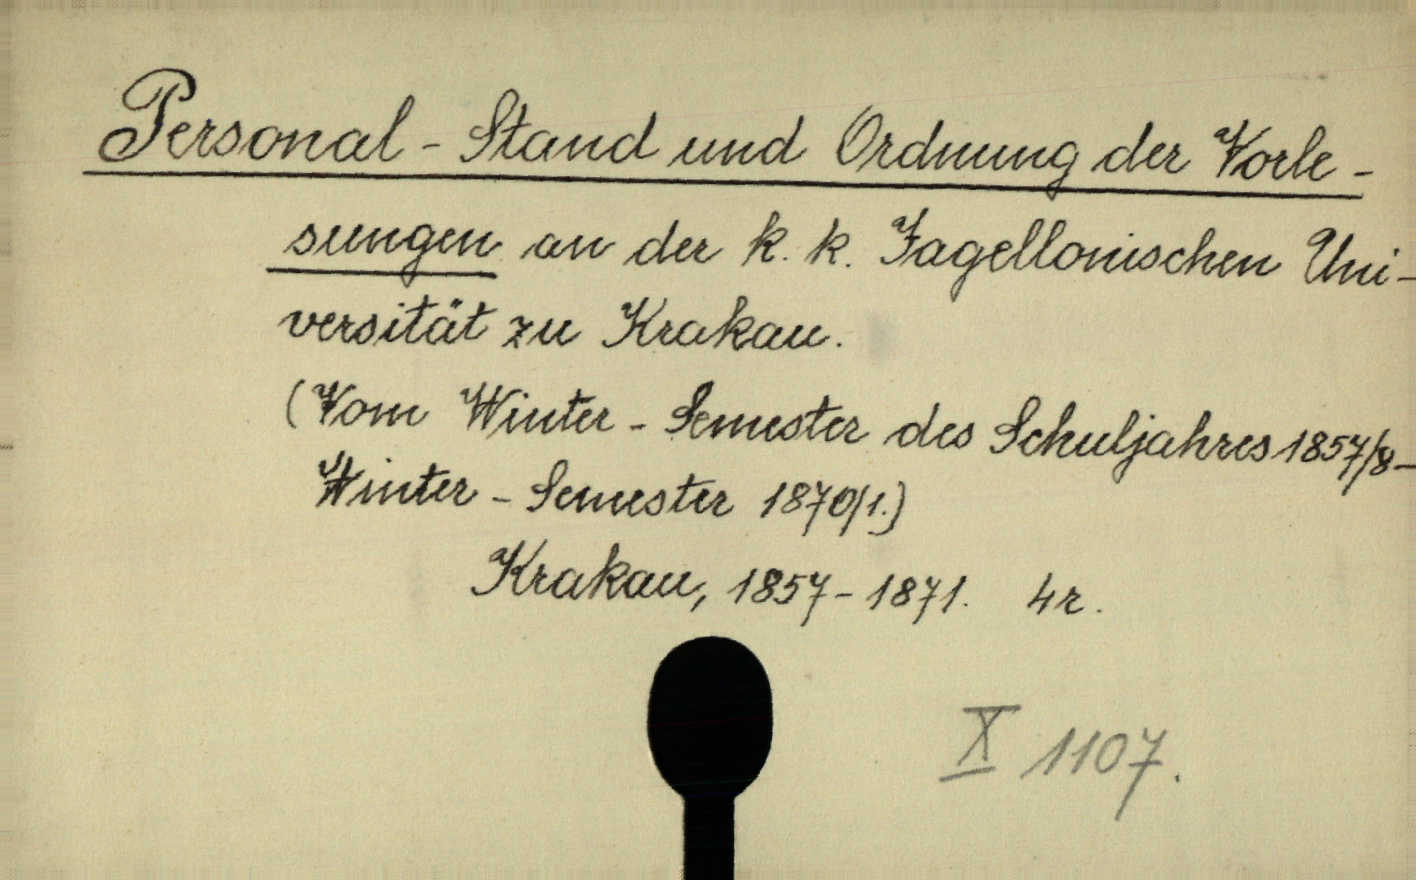 Personal - Stand und Ordnung der Vorle -
sungen an der k. k. Jagellonischen Uni -
versität zu Krakau.
(Vom Winter - Semester des Schuljahres 1857/8 -
Winter - Semester 1870/1.)
Krakau, 1857 - 1871. 4r.
X 1107.